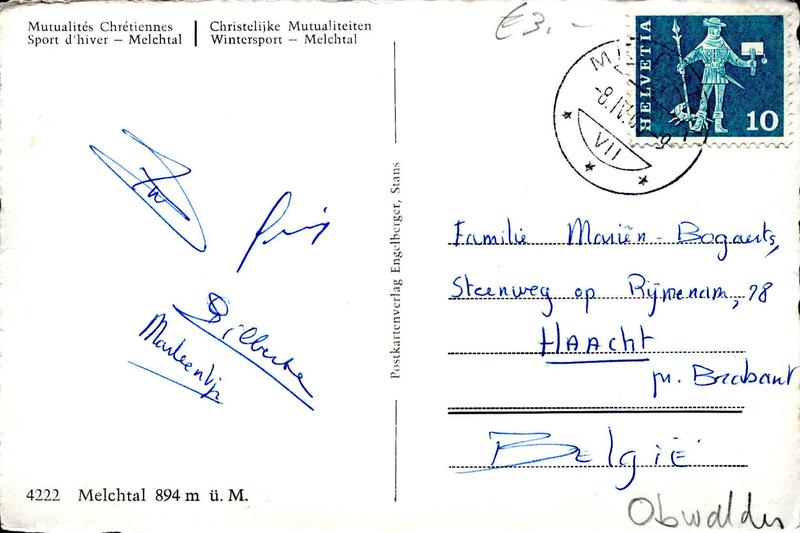 Mutualités Chrétiennes
Sport d'hiver – Melchtal
Christelijke Mutualiteiten
Wintersport – Melchtal
€3.-
HELVETIA
10
-8.IV.
VII
Postkartenverlag Engelberger, Stans
Familie Mariën-Bogaerts,
Steenweg op Rijmenam, 98
HAACHT
pr. Brabant
België
Gilberte
Marleentje
4222 Melchtal 894 m ü. M.
Obwalden